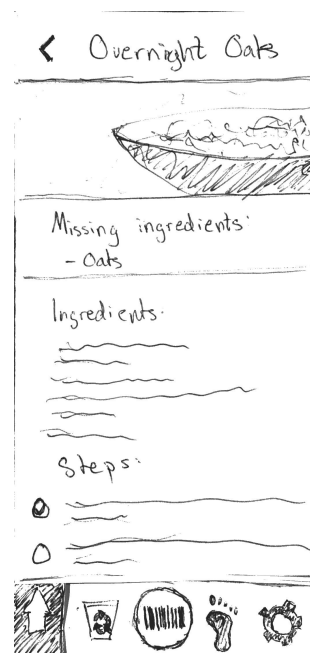 Overnight Oats
Missing ingredients:
- Oats
Ingredients:
Steps: